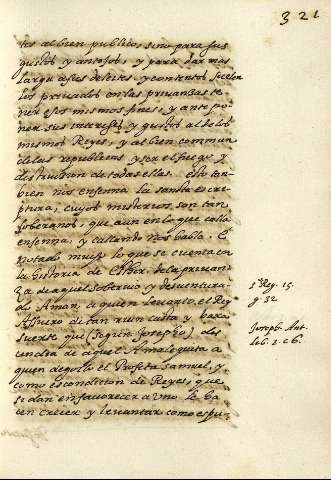 321
tos al bien publico, sino para sus
gustos y antojos, y para dar mas
larga a sus deleites, y contentos suelen
los privados en las privanzas te-
ner esos mismos fines, y ante po-
ner sus intereses y gustos al de los
mismos Reyes, y al bien commun
de las republicas y ser el fuego y
distruicion de todas ellas. esto tan-
bien nos enseña la santa escre-
ptura, cuyos misterios son tan
soberanos, que aun en lo que calla
enseña, y callando nos habla. E
notado mucho lo que se cuenta en
la historia de Ester, de la privan-
za de aquel sobervio y desventura-
do Aman, a quien levanto el Rey
Assuero de tan ruin casta y baxa
suerte que (segun Josepho) des-
cendia de aquel Amalequita a
quien degollo el Profeta Samuel, y
como es condicion de Reyes, que
se dan en favorecer a uno le ha-
cen crecer y levantar como espu-
1 Reg. 15.
g. 32
Joseph. Ant.
lib. 2. c. 6.